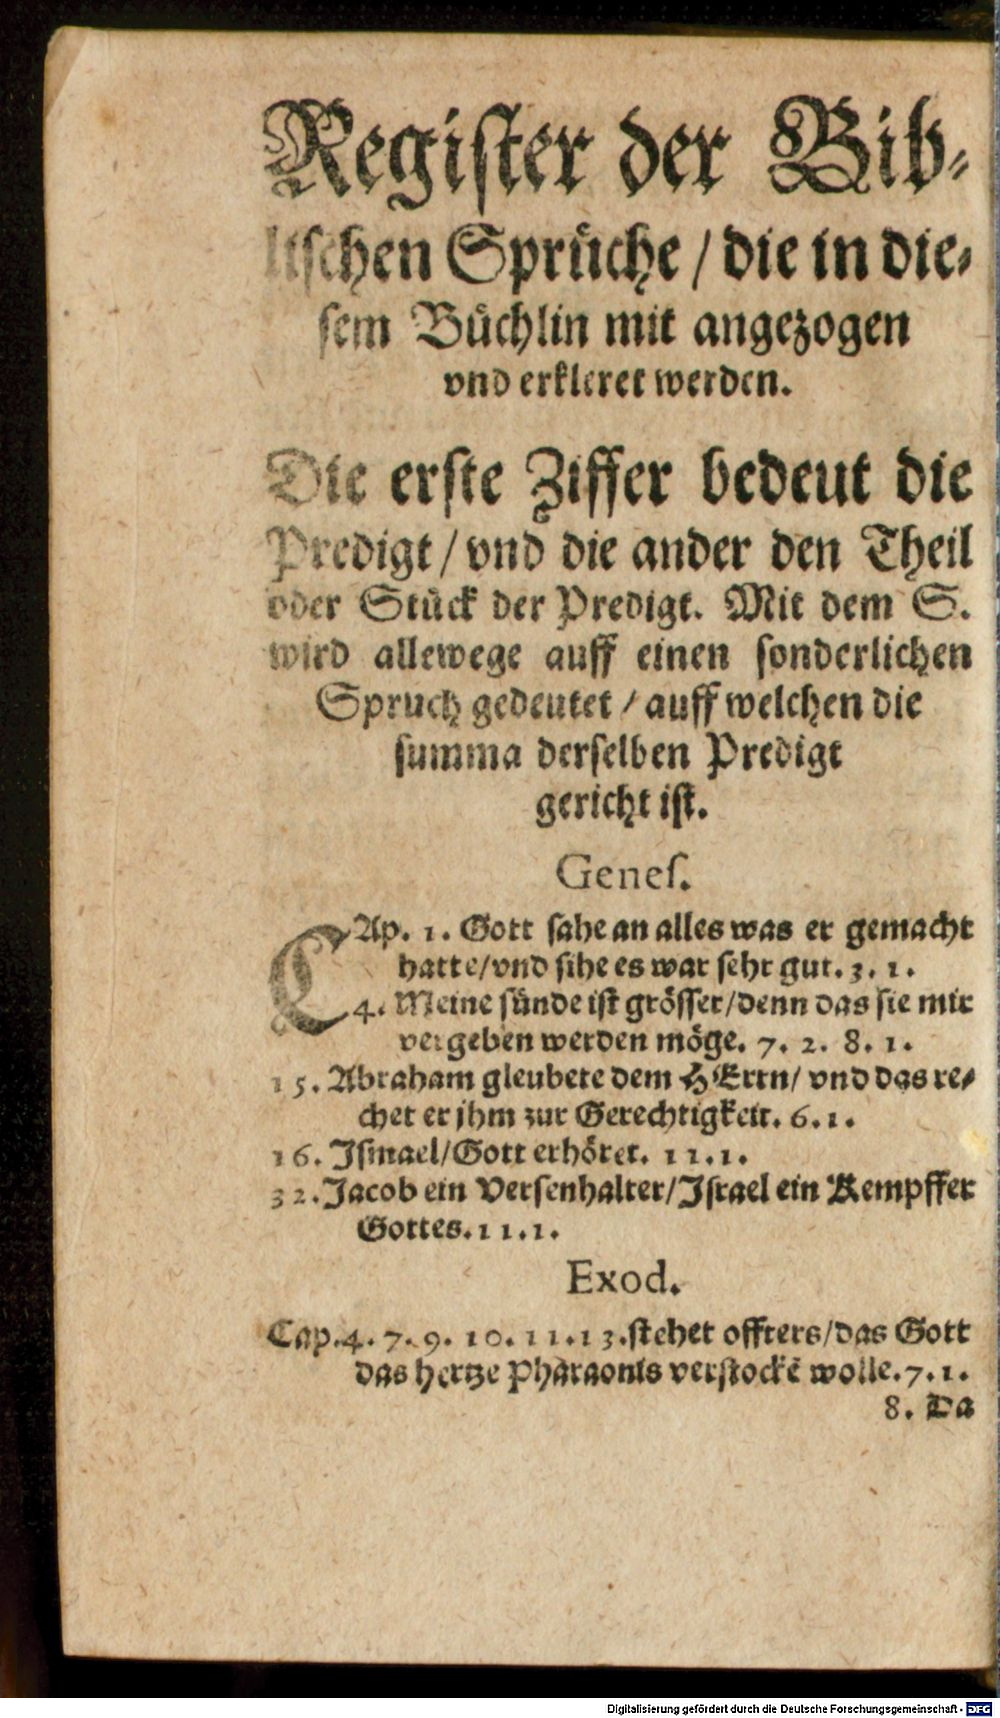 Register der Bib⸗
lischen Sprüche / die in die⸗
sem Büchlin mit angezogen
vnd erkleret werden.
Die erste Ziffer bedeut die
Predigt / vnd die ander den Theil
oder Stück der Predigt. Mit dem S.
wird allewege auff einen sonderlichen
Spruch gedeutet / auff welchen die
summa derselben Predigt
gericht ist.
Genes.
CAp. 1. Gott sahe an alles was er gemacht
hatte/vnd sihe es war sehr gut. 3. 1.
4. Meine sünde ist grösser/denn das sie mir
vergeben werden möge. 7. 2. 8. 1.
15. Abraham gleubete dem HErrn/ vnd das re⸗
chet er jhm zur Gerechtigkeit. 6. 1.
16. Ismael/Gott erhöret. 11. 1.
32. Jacob ein Versenhalter/Israel ein Kempffer
Gottes. 11. 1.
Exod.
Cap. 4. 7. 9. 10. 11. 13. stehet offters/das Gott
das hertze Pharaonis verstockē wolle. 7. 1.
8. Da
Digitalisierung gefördert durch die Deutsche Forschungsgemeinschaft - DFG